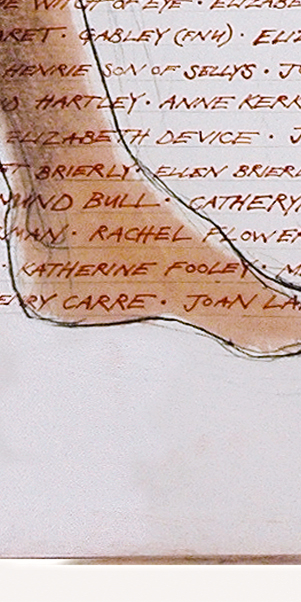 WITCH OF EYE · ELIZABE
ARET · GABLEY (FNU) · ELIZ
HENRIE SON OF SELLYS · J
HARTLEY · ANNE KERR
ELIZABETH DEVICE · J
ET BRIERLY · ELLEN BRIERL
MUND BULL · CATHERY
MAN · RACHEL FLOWER
· KATHERINE FOOLEY · M
ENRY CARRE · JOAN LA